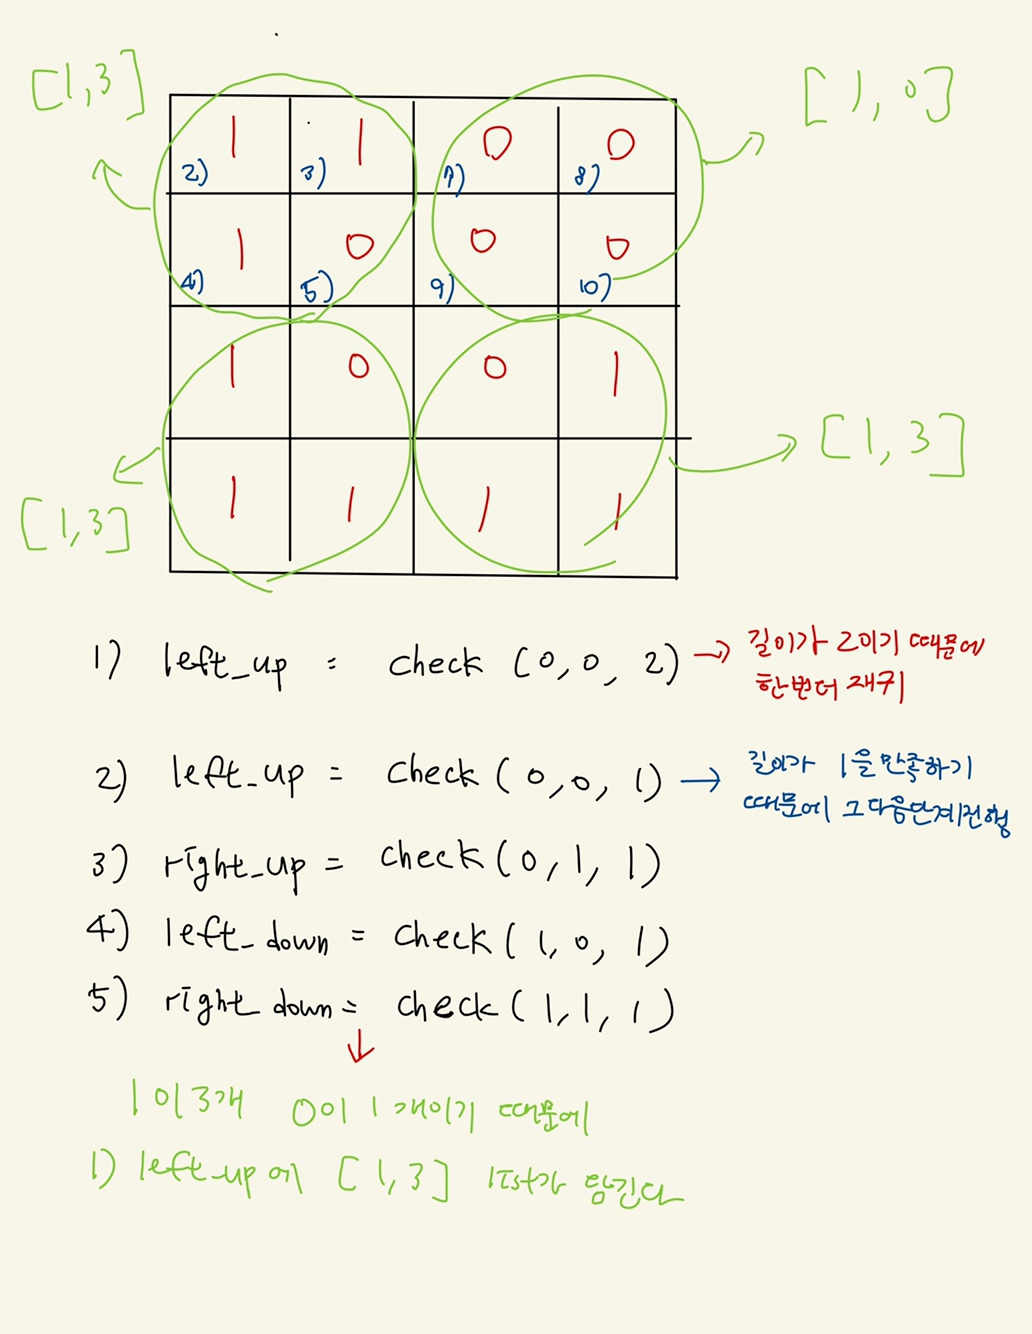 [1,3]
[1,0]
1 1 0 0
2) 3) 7) 8)
1 0 0 0
4) 5) 9) 10)
1 0 0 1
[1,3]
1 1 1 1
[1,3]
1) left_up : check (0,0,2) → 길이가 2이기 때문에
한번더 재귀
2) left_up = check(0,0,1) → 길이가 1을 만족하기
때문에 그다음단계진행
3) right_up = check(0,1,1)
4) left_down = check(1,0,1)
5) right_down = check(1,1,1)
1이 3개 0이 1개이기 때문에
1) left_up에 [1,3] list가 담긴다